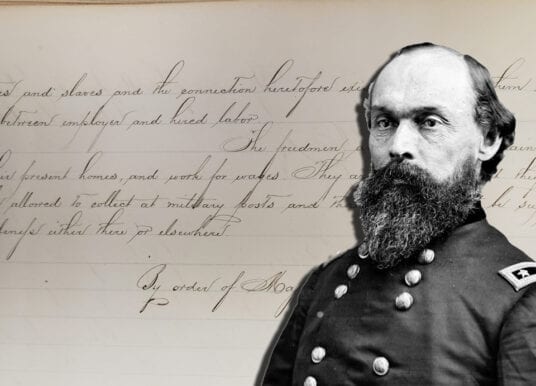 and slaves and the connection heretofore them
between employer and hired labor.
The freedmen
present homes, and work for wages. They
allowed to collect at military posts and
either there or elsewhere
By order of